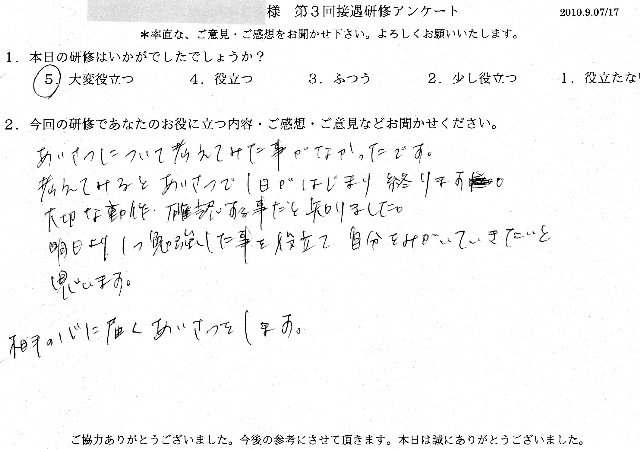 様 第3回接遇研修アンケート
2010.9.07/17
*率直な、ご意見・ご感想をお聞かせ下さい。よろしくお願いいたします。
1．本日の研修はいかがでしたでしょうか？
5．大変役立つ 4．役立つ 3．ふつう 2．少し役立つ 1．役立たな
2．今回の研修であなたのお役に立つ内容・ご感想・ご意見などお聞かせください。
あいさつについて考えてみた事がなかったです。
考えてみるとあいさつで1日がはじまり終ります。
大切な動作、確認する事だと知りました。
明日より1つ勉強した事を役立て自分をみがいていきたいと
思います。
相手の心に届くあいさつをします。
ご協力ありがとうございました。今後の参考にさせて頂きます。本日は誠にありがとうございました。